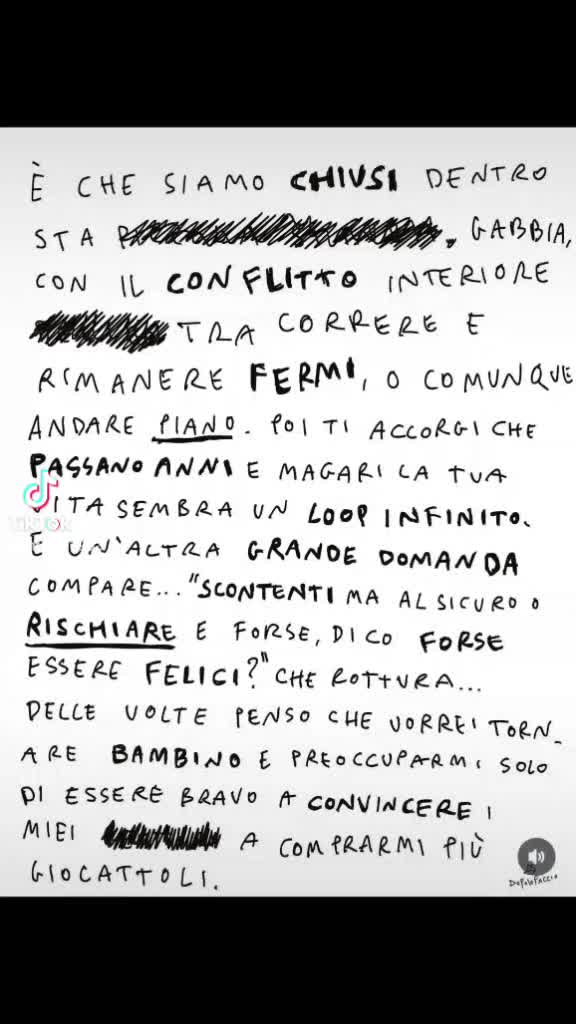 È CHE SIAMO CHIUSI DENTRO
STA GABBIA,
CON IL CONFLITTO INTERIORE
TRA CORRERE E
RIMANERE FERMI, O COMUNQUE
ANDARE PIANO. POI TI ACCORGI CHE
PASSANO ANNI E MAGARI LA TUA
VITA SEMBRA UN LOOP INFINITO.
E UN'ALTRA GRANDE DOMANDA
COMPARE... "SCONTENTI MA AL SICURO O
RISCHIARE E FORSE, DICO FORSE
ESSERE FELICI?" CHE ROTTURA...
DELLE VOLTE PENSO CHE VORREI TORN_
ARE BAMBINO E PREOCCUPARMI SOLO
DI ESSERE BRAVO A CONVINCERE I
MIEI A COMPRARMI PIÙ
GIOCATTOLI.
TikTok
DOPOLOFACCIO